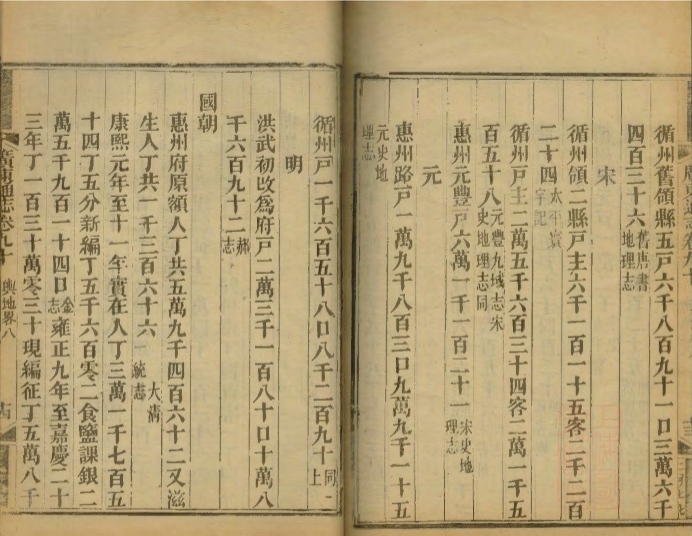 循州舊領縣五戶六千八百九十一口三萬六千
四百三十六舊唐書地理志
宋
循州領二縣戶主六千一百一十五客二千二百
二十四太平寰宇記
循州戶主二萬五千六百三十四客二萬一千五
百五十八元豐九域志宋史地理志同
惠州元豐戶六萬一千一百二十一宋史地理志
元
惠州路戶一萬九千八百三口九萬九千一十五
元史地理志
循州戶一千六百五十八口八千二百九十同上
明
洪武初改爲府戶二萬三千一百八十口十萬八
千六百九十二郝志
國朝
惠州府原額人丁共五萬九千四百六十二又滋
生人丁共一千三百六十六大淸一統志
康熙元年至十一年實在人丁三萬一千七百五
十四丁五分新編丁五千六百零二食鹽課銀二
萬五千九百一十四口金志雍正九年至嘉慶二十
三年丁一百三十萬零三十現編征丁五萬八千
廣東通志卷九十 輿地畧八